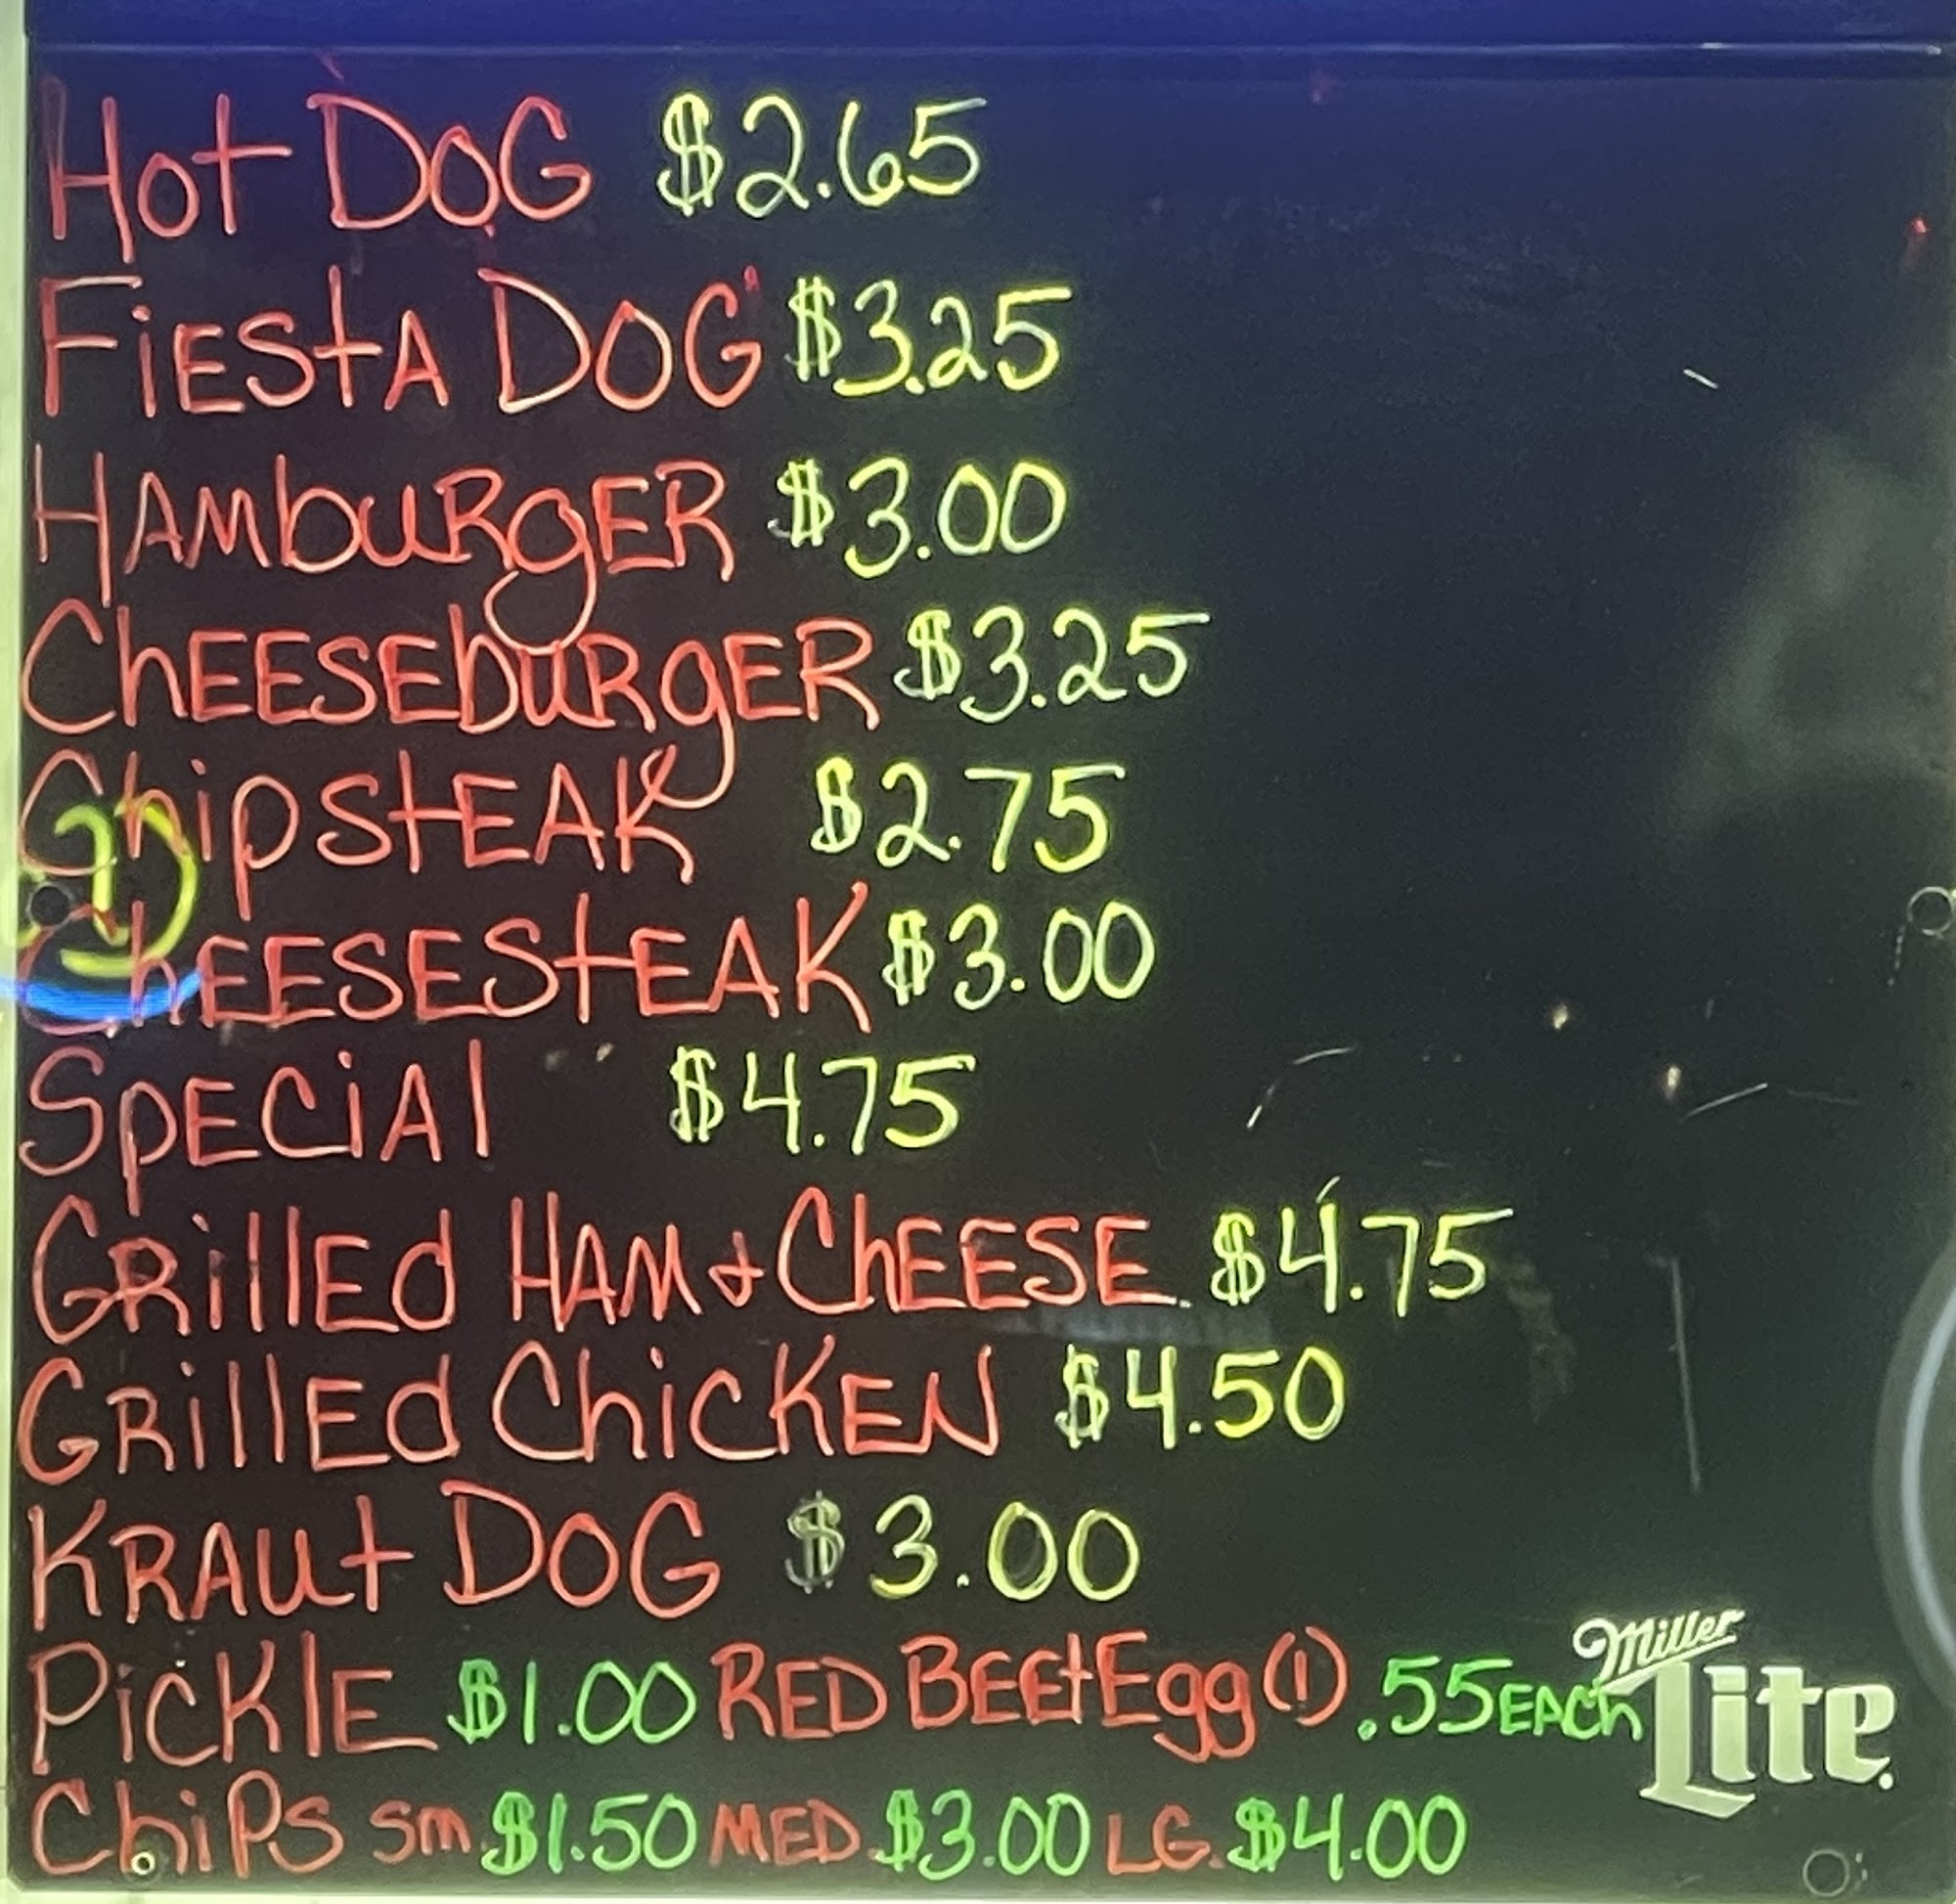 Hot DOG $2.65
FiESTA DOG $3.25
HAMbURgER $3.00
ChEESEbURgER $3.25
ChipSTEAK $2.75
ChEESESTEAK $3.00
SpECiAl $4.75
GRillEd HAM & ChEESE $4.75
GRillEd ChiCKEN $4.50
KRAUt DOG $3.00
PiCKlE $1.00 RED BEEt Egg (1) .55 EACh
ChiPS Sm. $1.50 MED. $3.00 LG. $4.00
Miller
Lite